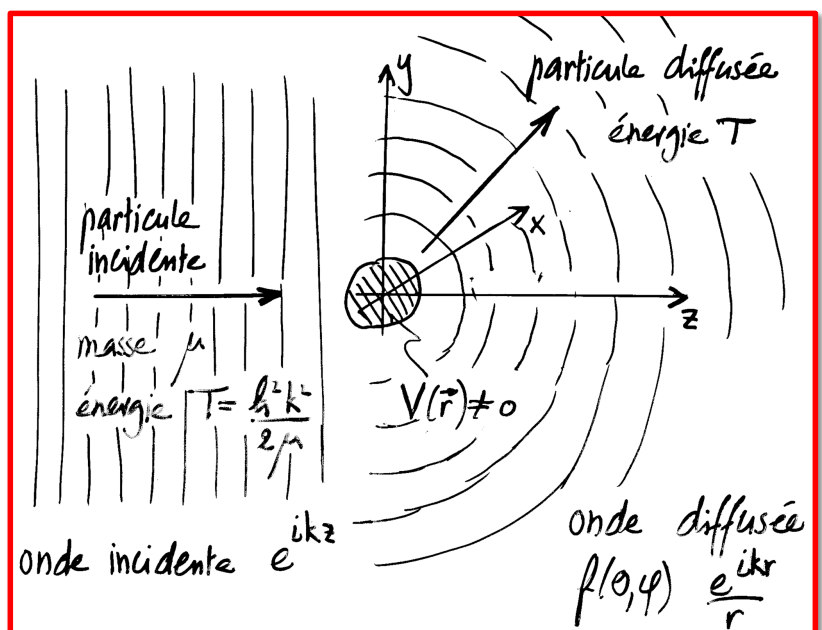 y
particule diffusée
énergie T
x
particule
incidente
z
masse μ
énergie T = ħ²k²/2μ
V(r⃗) ≠ 0
onde incidente e^{ikz}
onde diffusée
f(θ,φ) e^{ikr}/r